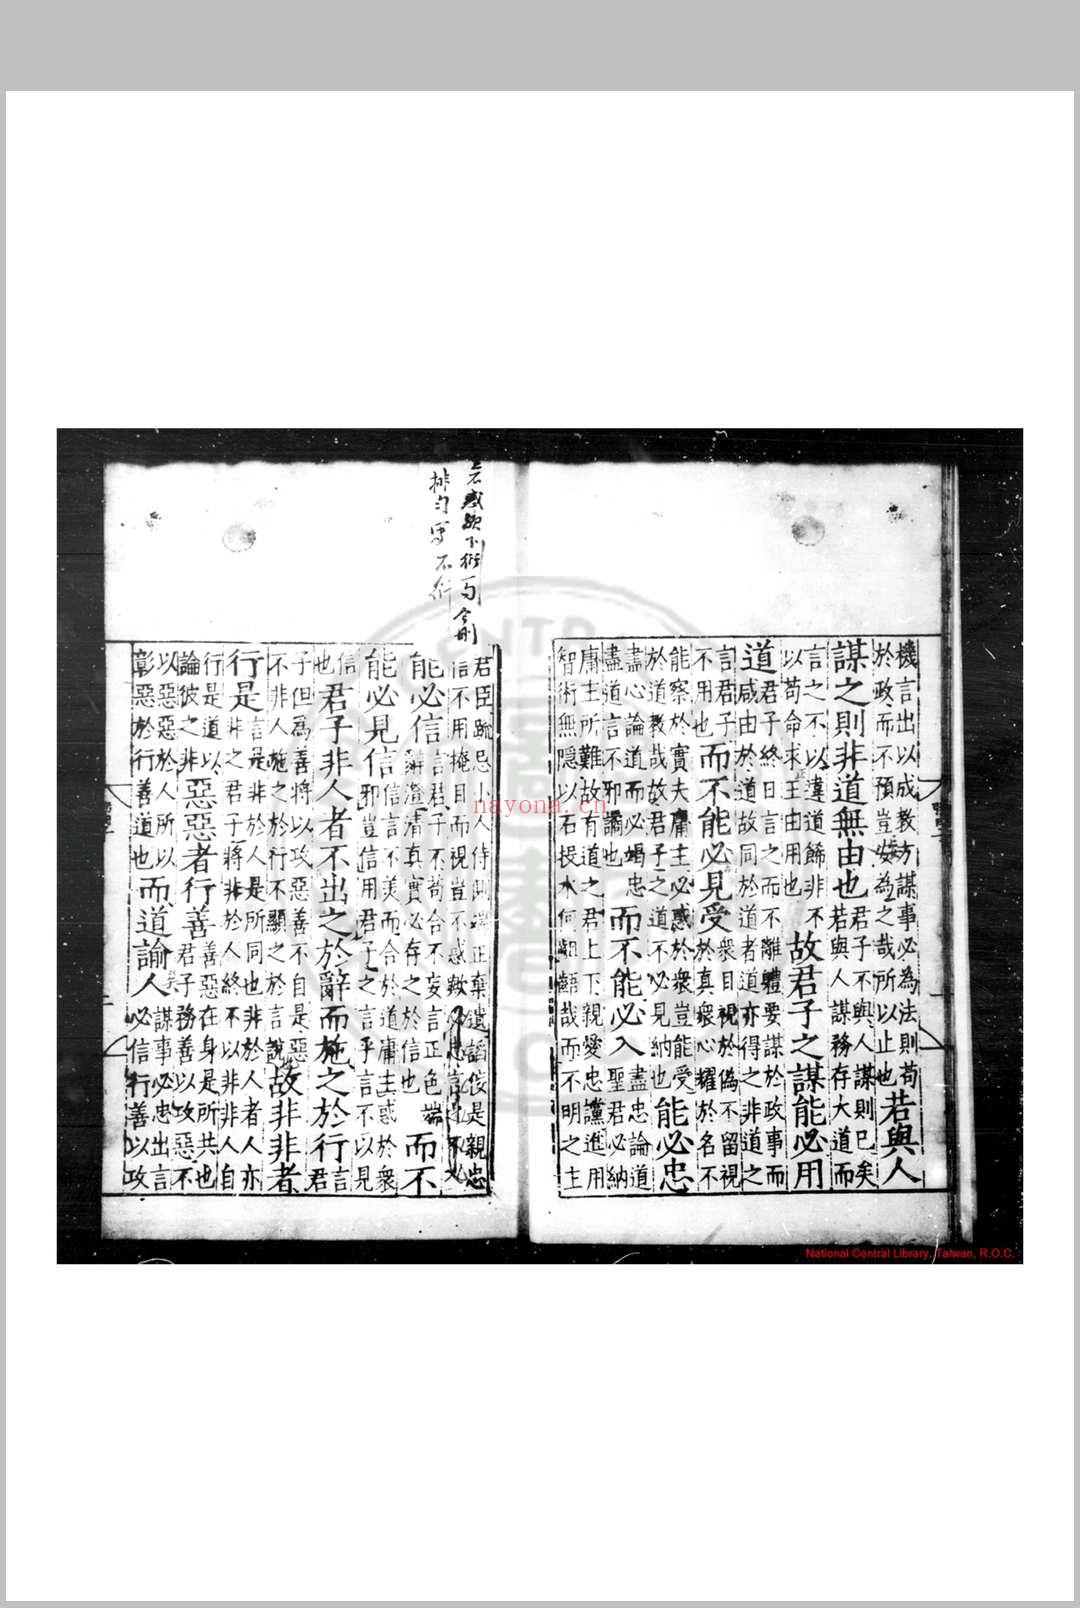 機言出以成教方謀事必為法則苟
於政而不預豈安為之哉所以止也
若與人
謀之則非道無由也
君子不與人謀則已矣
若與人謀務存大道而
言之不以違道飾非不
以苟命求主由用也
故君子之謀能必用
道
君子終日言之而不離軆要謀於政事而
咸由於道故同於道者道亦得之非道之
言君子
不用也
而不能必見受
衆目視於偽不留視
於真衆心耀於名不
能察於實夫庸主必惑於衆豈能受
於道教哉故君子之道不必見納也
能必忠
盡心論道而必竭忠
盡道言不邪謟也
而不能必入
盡忠論道
聖君必納
庸主所難故有道之君上下親愛忠讜進用
智術無隱以石投水何齟齬哉而不明之主
君臣踈忌小人侍側端正棄遺謟佞是親忠
信不用掩目而視豈不惑歟
能必信
言君子不苟合不妄言正色端
辭澄清真實必存之於信也
而不
能必見信
信言不美而合於道庸主惑於衆
邪豈信用君子之言乎言不以見
信
也
君子非人者不出之於辭而施之於行
言
君
子但為善將以攻惡善不自是惡
不非人施之於行不顯之於言說
故非非者
行是
言是非於人是所同也非於人者人亦
非之君子將非於人終不以非非人自
行是道以
論彼之非
惡惡者行善
善惡在身是所共也
君子務善以攻惡不
以惡惡於人所以
彰惡於行善道也
而道諭人
謀事必忠出言
必信行善以攻
nayona.cn
National Central Library, Taiwan, R.O.C.